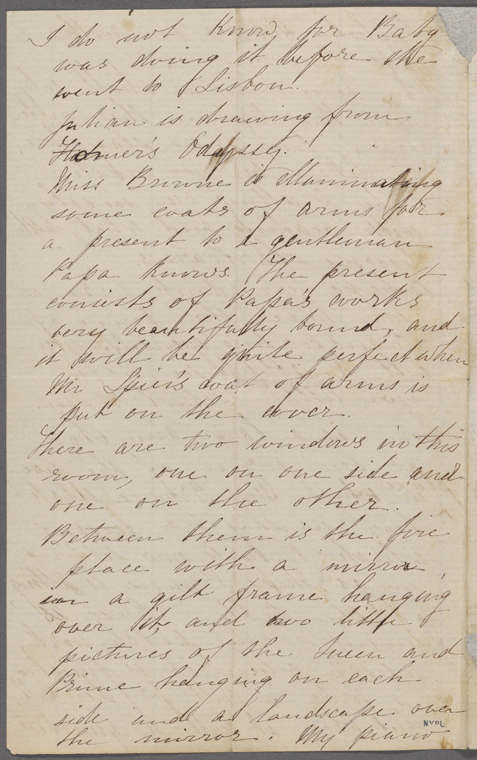 I do not know, for Baby
was doing it before she
went to Lisbon.
Julian is drawing from
Homer's Odyssey.
Miss Browne is illuminating
some coats of arms for
a present to a gentleman
Papa knows. The present
consists of Papa's works
very beautifully bound, and
it will be quite perfect when
Mr Spier's coat of arms is
put on the cover.
There are two windows in this
room, one on one side and
one on the other.
Between them is the fire
place with a mirror
in a gilt frame hanging
over it, and two little
pictures of the Queen and
Prince hanging on each
side and a landscape over
the mirror. My piano
NYPL